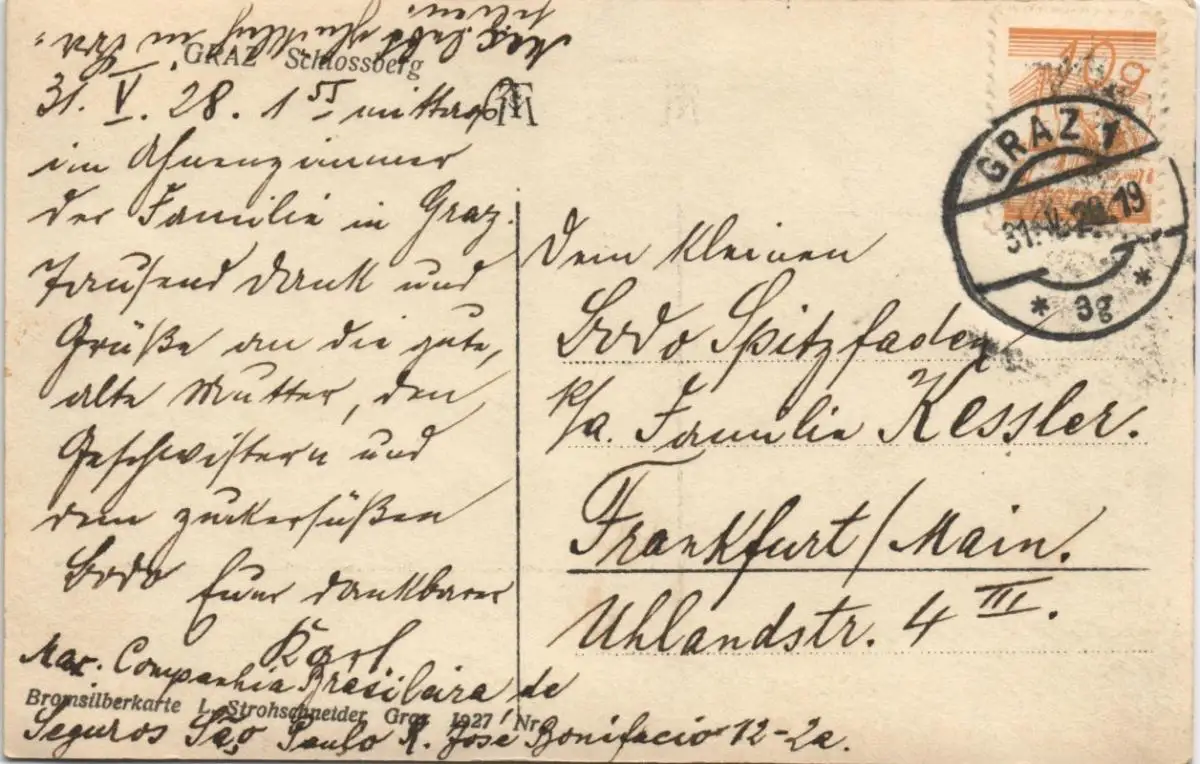 GRAZ Schlossberg
31. V. 28. 1 55 mittags
im Ahnenzimmer
der Familie in Graz.
Tausend Dank und
Grüße an die gute,
alte Mutter, den
Geschwistern und
dem zuckersüßen
Bodo Euer dankbarer
Karl
Companhia Brasileira de
Seguros São Paulo R. José Bonifacio 12-2a.
Bromsilberkarte L. Strohschneider Graz 1927 Nr
10g
GRAZ 1
31. V. 28. 19
* 3g *
Dem kleinen
Bodo Spitzfaden
p/a. Familie Kessler.
Frankfurt/Main.
Uhlandstr. 4 III.